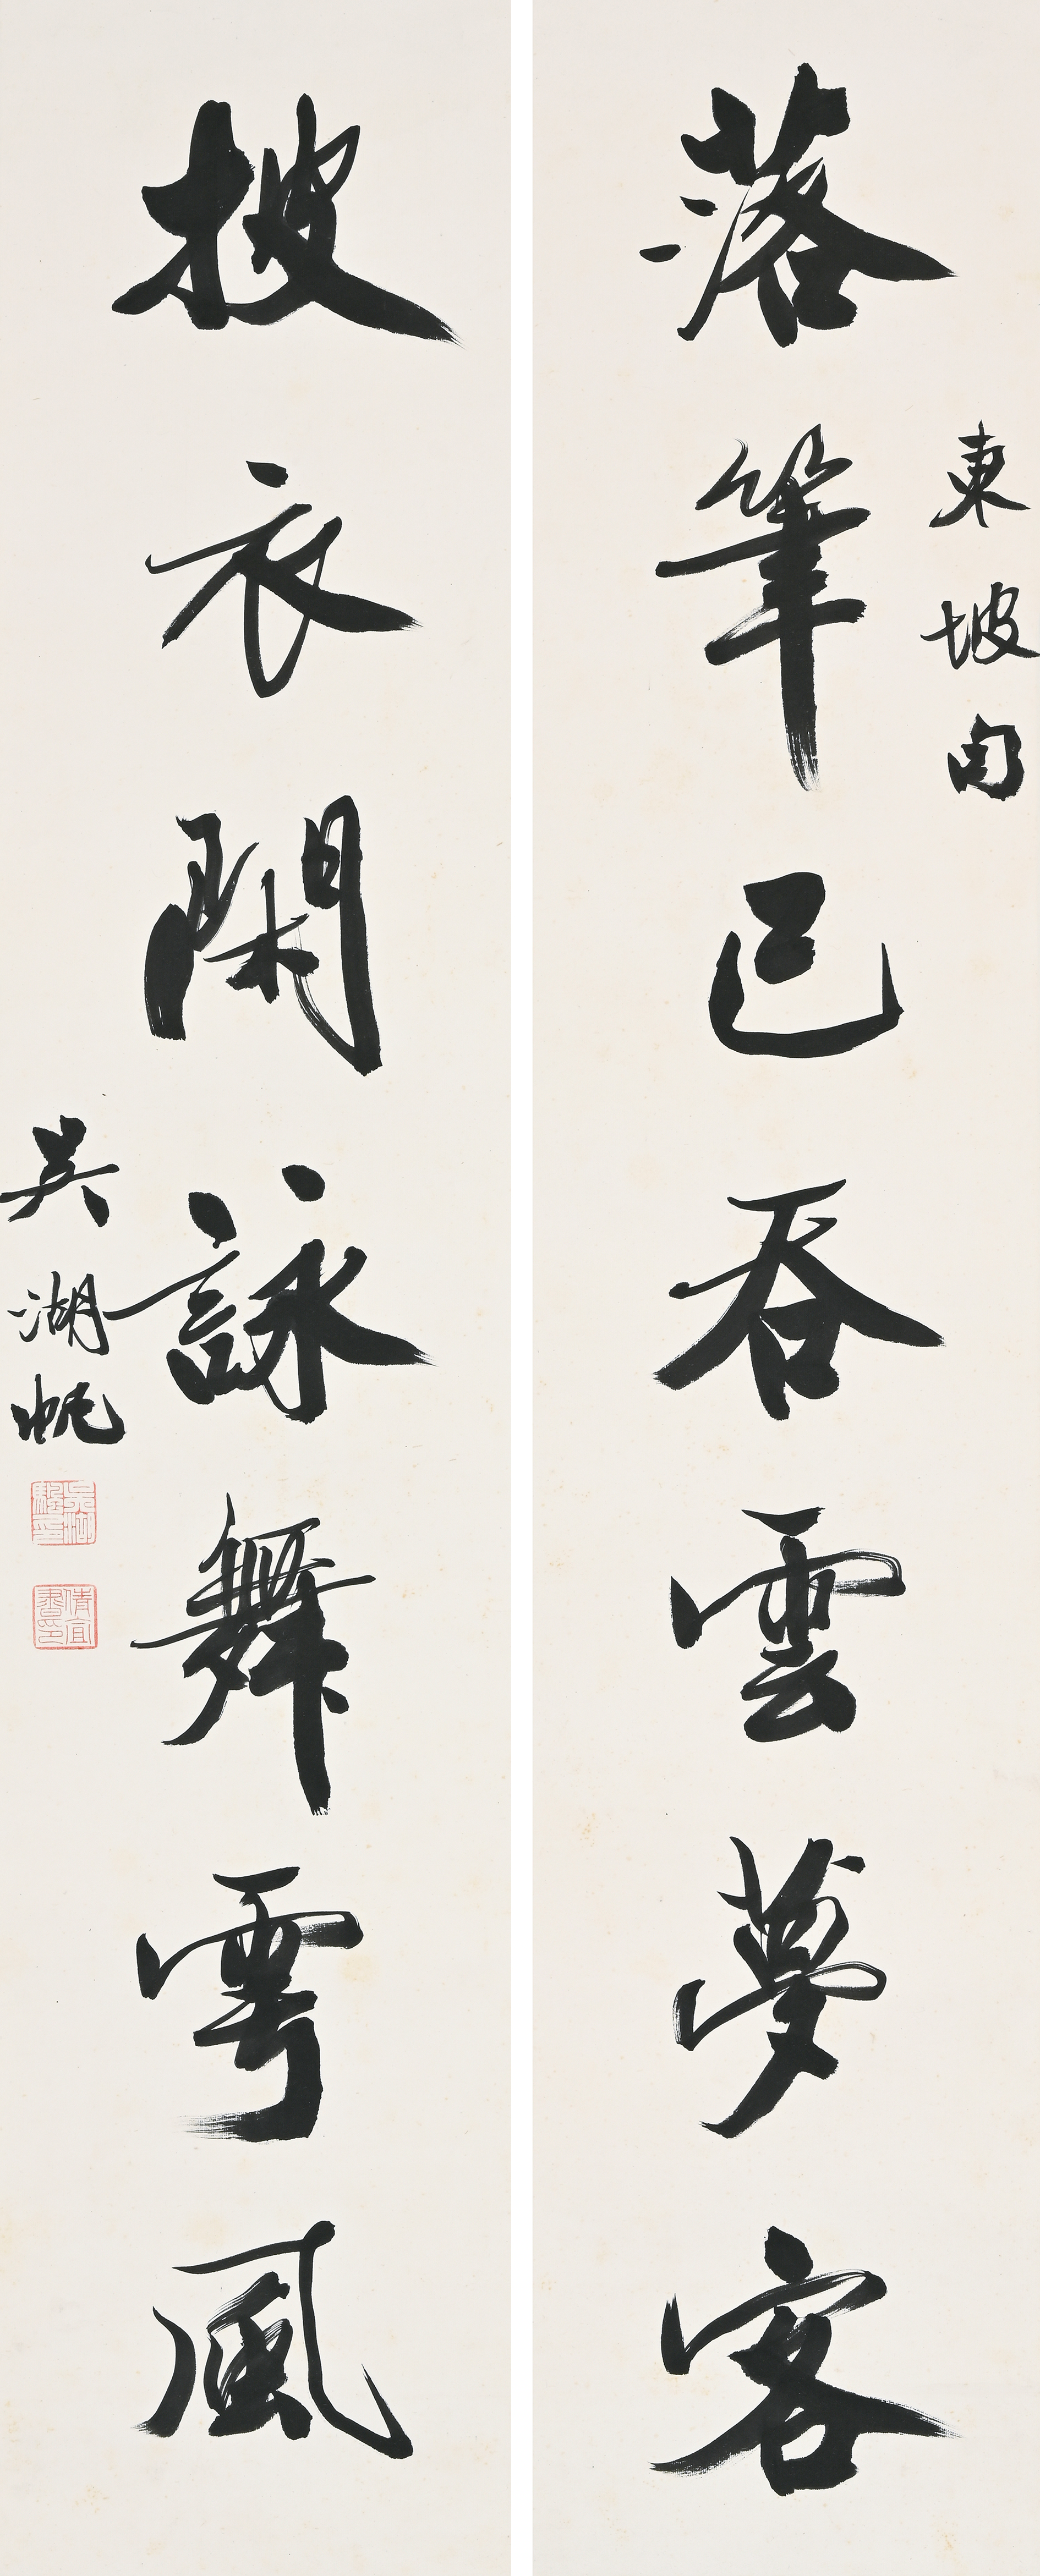 東坡句
落筆已吞雲夢客
披衣閑詠舞雩風
吳湖帆
倩宜書印